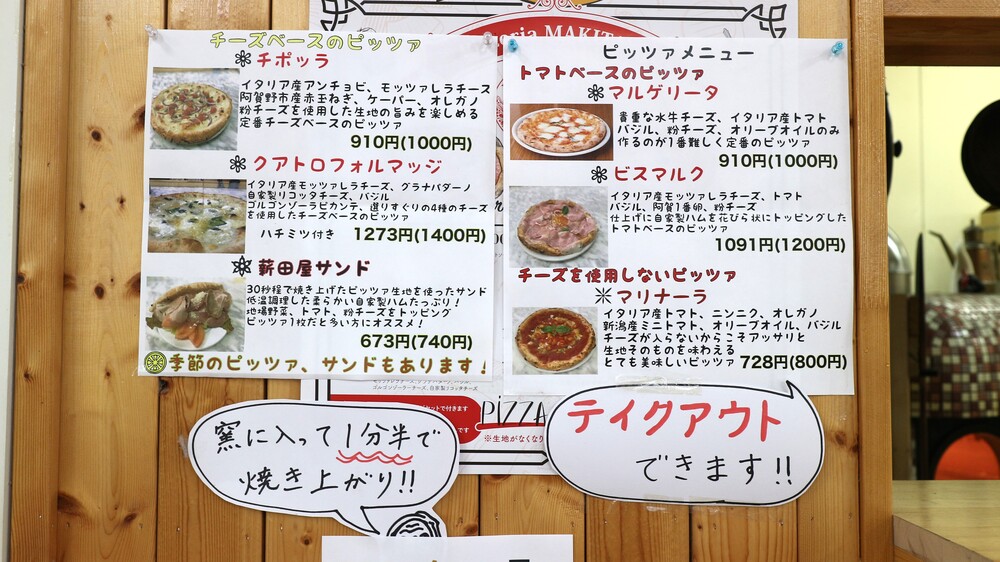 oria MAKIT
チーズベースのピッツァ
チポッラ
イタリア産アンチョビ、モッツァレラチーズ
阿賀野市産赤玉ねぎ、ケーパー、オレガノ
粉チーズを使用した生地の旨みを楽しめる
定番チーズベースのピッツァ
910円(1000円)
クアトロフォルマッジ
イタリア産モッツァレラチーズ、グラナパダーノ
自家製リコッタチーズ、バジル
ゴルゴンゾーラピカンテ、選りすぐりの4種のチーズ
を使用したチーズベースのピッツァ
ハチミツ付き 1273円(1400円)
薪田屋サンド
30秒程で焼き上げたピッツァ生地を使ったサンド
低温調理した柔らかい自家製ハムたっぷり!
地場野菜、トマト、粉チーズをトッピング
ピッツァ1枚だと多い方にオススメ!
673円(740円)
季節のピッツァ、サンドもあります!
ピッツァメニュー
トマトベースのピッツァ
マルゲリータ
貴重な水牛チーズ、イタリア産トマト
バジル、粉チーズ、オリーブオイルのみ
作るのが1番難しく定番のピッツァ
910円(1000円)
ビスマルク
イタリア産モッツァレラチーズ、トマト
バジル、阿賀1番卵、粉チーズ
仕上げに自家製ハムを花びら状にトッピングした
トマトベースのピッツァ
1091円(1200円)
チーズを使用しないピッツァ
※マリナーラ
イタリア産トマト、ニンニク、オレガノ
新潟産ミニトマト、オリーブオイル、バジル
チーズが入らないからこそアッサリと
生地そのものを味わえる
とても美味しいピッツァ 728円(800円)
ゴルゴンゾーラチーズ、自家製リコッタチーズ
PIZZA
※生地がなくなり
窯に入って1分半で
焼き上がり!!
テイクアウト
できます!!